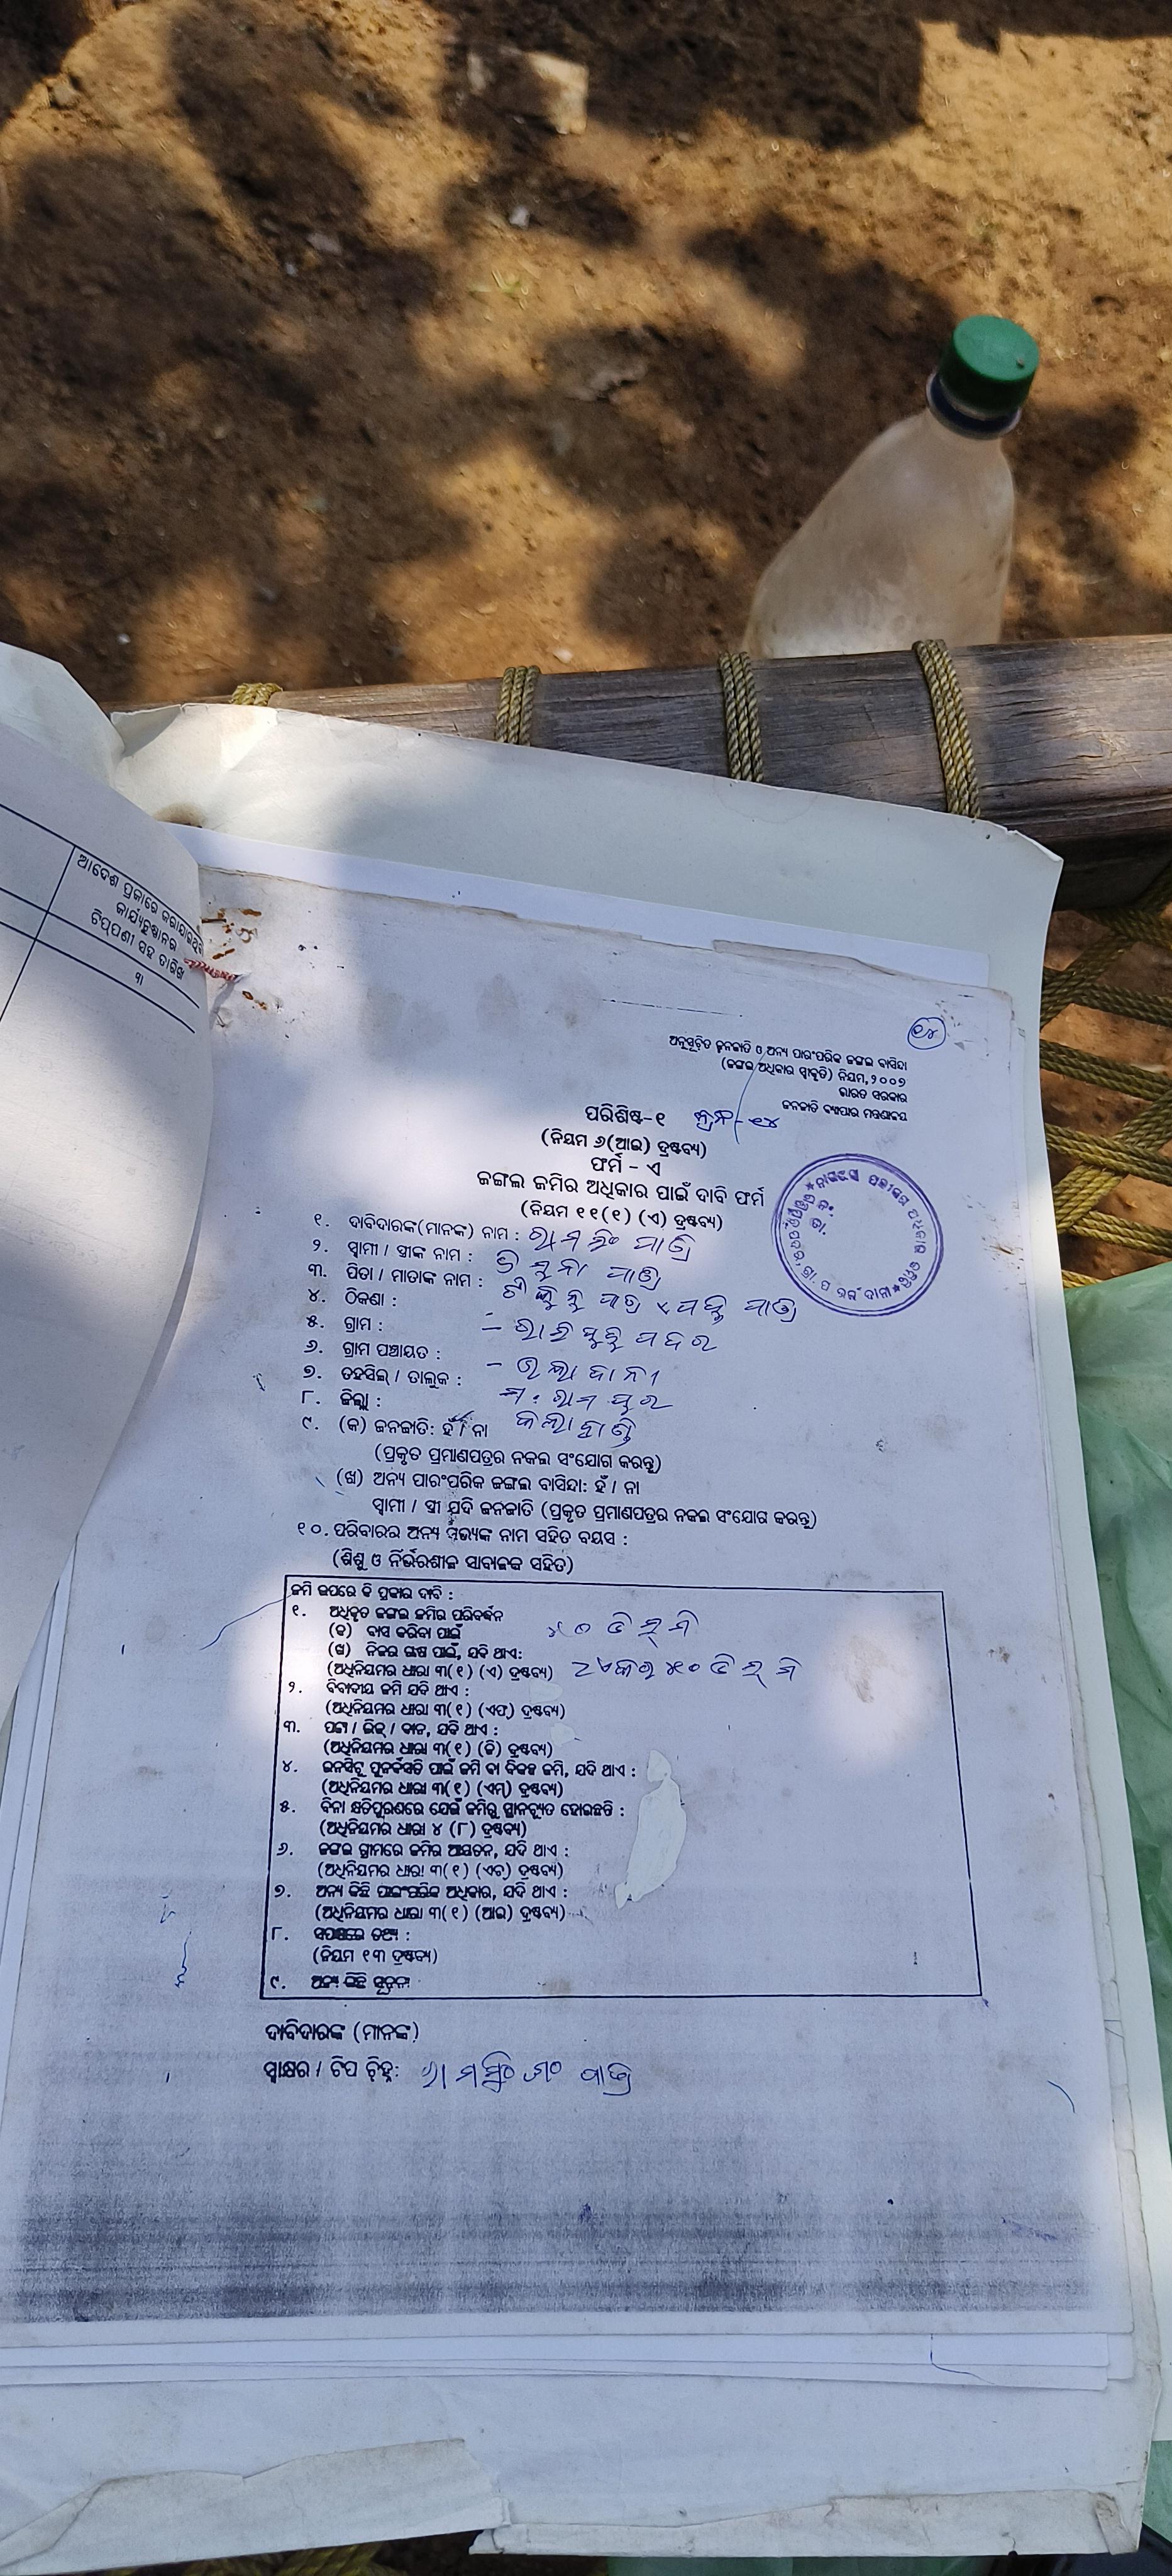 ଆଦେଶ ପ୍ରକାରେ କରାଯାଇଥିବା
କାର୍ଯ୍ୟାନୁଷ୍ଠାନର
ଟିପ୍ପଣୀ ସହ ତାରିଖ
୩
୧୪
ଅନୁସୂଚିତ ଜନଜାତି ଓ ଅନ୍ୟ ପାରଂପରିକ ଜଙ୍ଗଲ ବାସିନ୍ଦା
(ଜଙ୍ଗଲ ଅଧିକାର ସ୍ୱୀକୃତି) ନିୟମ, ୨୦୦୭
ଭାରତ ସରକାର
ଜନଜାତି ବ୍ୟାପାର ମନ୍ତ୍ରଣାଳୟ
ପରିଶିଷ୍ଟ-୧
(ନିୟମ ୬(ଆଇ) ଦ୍ରଷ୍ଟବ୍ୟ)
ଫର୍ମ - ଏ
ଜଙ୍ଗଲ ଜମିର ଅଧିକାର ପାଇଁ ଦାବି ଫର୍ମ
(ନିୟମ ୧୧(୧) (ଏ) ଦ୍ରଷ୍ଟବ୍ୟ)
୧. ଦାବିଦାରଙ୍କ(ମାନଙ୍କ) ନାମ : ରାମସିଂ ପାତ୍ର
୨. ସ୍ୱାମୀ / ସ୍ତ୍ରୀଙ୍କ ନାମ : ପାତ୍ର
୩. ପିତା / ମାତାଙ୍କ ନାମ : ପାତ୍ର
୪. ଠିକଣା :
୫. ଗ୍ରାମ :
୬. ଗ୍ରାମ ପଞ୍ଚାୟତ :
୭. ତହସିଲ୍ / ତାଲୁକ : ମ: ରାମପୁର
୮. ଜିଲ୍ଲା : କଳାହାଣ୍ଡି
୯. (କ) ଜନଜାତି: ହଁ / ନା
(ପ୍ରକୃତ ପ୍ରମାଣପତ୍ରର ନକଲ ସଂଯୋଗ କରନ୍ତୁ)
(ଖ) ଅନ୍ୟ ପାରଂପରିକ ଜଙ୍ଗଲ ବାସିନ୍ଦା: ହଁ / ନା
ସ୍ୱାମୀ / ସ୍ତ୍ରୀ ଯଦି ଜନଜାତି (ପ୍ରକୃତ ପ୍ରମାଣପତ୍ରର ନକଲ ସଂଯୋଗ କରନ୍ତୁ)
୧୦. ପରିବାରର ଅନ୍ୟ ସଭ୍ୟଙ୍କ ନାମ ସହିତ ବୟସ :
(ଶିଶୁ ଓ ନିର୍ଭରଶୀଳ ସାବାଳକ ସହିତ)
ଜମି ଉପରେ କି ପ୍ରକାର ଦାବି :
୧. ଅଧିକୃତ ଜଙ୍ଗଲ ଜମିର ପରିବର୍ଦ୍ଧନ
(କ) ବାସ କରିବା ପାଇଁ ୪୦ ଡିସ୍ମି
(ଖ) ନିଜର ଚାଷ ପାଇଁ, ଯଦି ଥାଏ:
(ଅଧିନିୟମର ଧାରା ୩(୧) (ଏ) ଦ୍ରଷ୍ଟବ୍ୟ) ୨ଏକର ୫୦ ଡିସ୍ମି
୨. ବିବାଦୀୟ ଜମି ଯଦି ଥାଏ :
(ଅଧିନିୟମର ଧାରା ୩(୧) (ଏଫ୍) ଦ୍ରଷ୍ଟବ୍ୟ)
୩. ପଟ୍ଟା / ଲିଜ୍ / ଦାନ, ଯଦି ଥାଏ :
(ଅଧିନିୟମର ଧାରା ୩(୧) (ଜି) ଦ୍ରଷ୍ଟବ୍ୟ)
୪. ଇନସିଟୁ ପୁନର୍ବସତି ପାଇଁ ଜମି ବା ବିକଳ୍ପ ଜମି, ଯଦି ଥାଏ :
(ଅଧିନିୟମର ଧାରା ୩(୧) (ଏମ୍) ଦ୍ରଷ୍ଟବ୍ୟ)
୫. ବିନା କ୍ଷତିପୂରଣରେ ଯେଉଁ ଜମିରୁ ସ୍ଥାନଚ୍ୟୁତ ହୋଇଛନ୍ତି :
(ଅଧିନିୟମର ଧାରା ୪ (୮) ଦ୍ରଷ୍ଟବ୍ୟ)
୬. ଜଙ୍ଗଲ ଗ୍ରାମରେ ଜମିର ଆୟତନ, ଯଦି ଥାଏ :
(ଅଧିନିୟମର ଧାରା ୩(୧) (ଏଚ୍) ଦ୍ରଷ୍ଟବ୍ୟ)
୭. ଅନ୍ୟ କିଛି ପାରଂପରିକ ଅଧିକାର, ଯଦି ଥାଏ :
(ଅଧିନିୟମର ଧାରା ୩(୧) (ଆଇ) ଦ୍ରଷ୍ଟବ୍ୟ)
୮. ସପକ୍ଷରେ ତଥ୍ୟ :
(ନିୟମ ୧୩ ଦ୍ରଷ୍ଟବ୍ୟ)
୯. ଅନ୍ୟ କିଛି ସୂଚନା
ଦାବିଦାରଙ୍କ (ମାନଙ୍କ)
ସ୍ୱାକ୍ଷର / ଟିପ ଚିହ୍ନ: